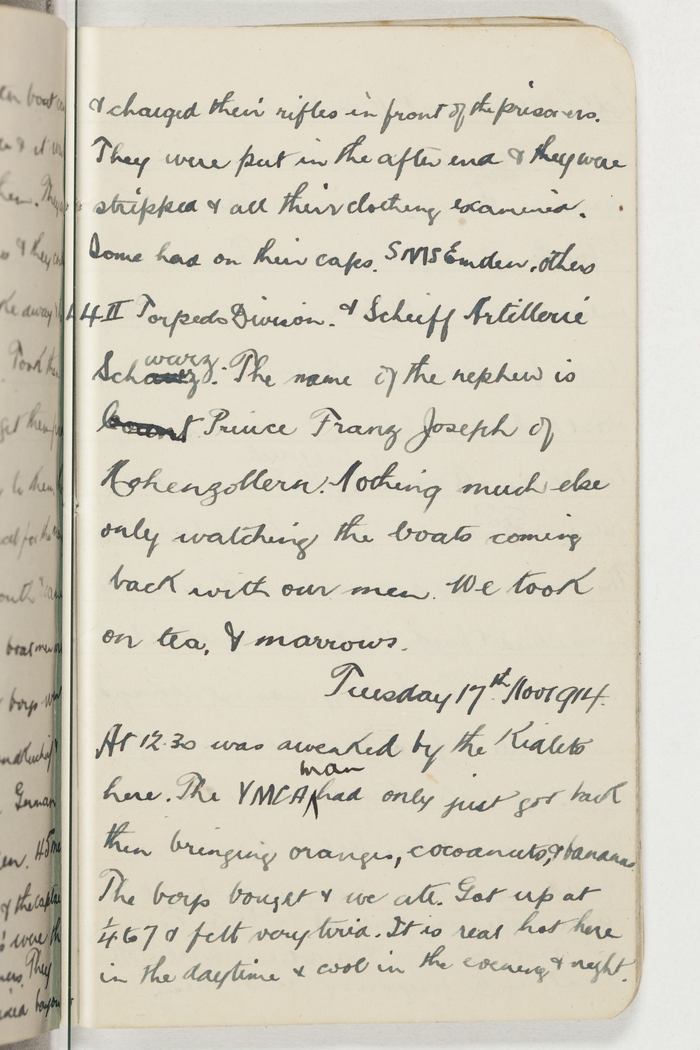 & charged their rifles in front of the prisoners.
They were put in the after end & they were
stripped & all their clothing examined.
Some had on their caps. SMS Emden, others
4 II Torpedo Division. & Scheiff Artillerie
Schwarz. The name of the nephew is
Count Prince Franz Joseph of
Hohenzollern. Nothing much else
only watching the boats coming
back with our men. We took
on tea, & marrows.
Tuesday 17th Nov 1914.
At 12.30 was awenked by the
man
here. The YMCA had only just got back
then bringing oranges, cocoanuts, & bananas
The boys bought & we ate. Got up at
¼ to 7 & felt very tired. It is real hot here
in the daytime & cool in the evening & night.